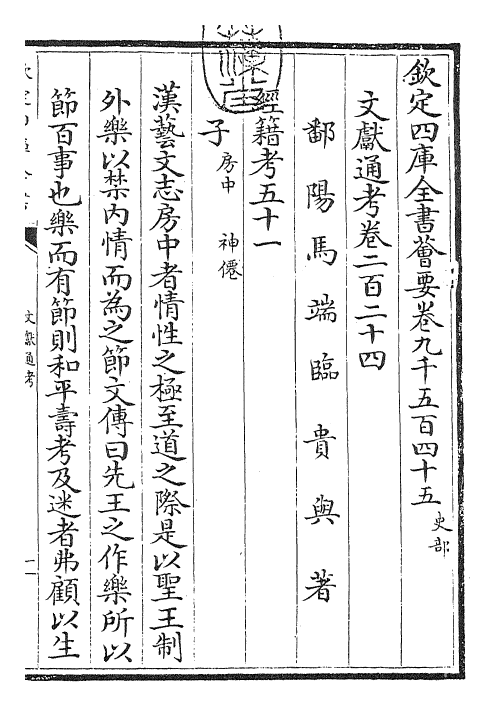 欽定四庫全書薈要卷九千五百四十五 史部
文獻通考卷二百二十四
鄱陽馬端臨貴與著
經籍考五十一
子 房中 神僊
漢藝文志房中者情性之極至道之際是以聖王制
外樂以禁内情而為之節文傳曰先王之作樂所以
節百事也樂而有節則和平壽考及迷者弗顧以生
文獻通考
一